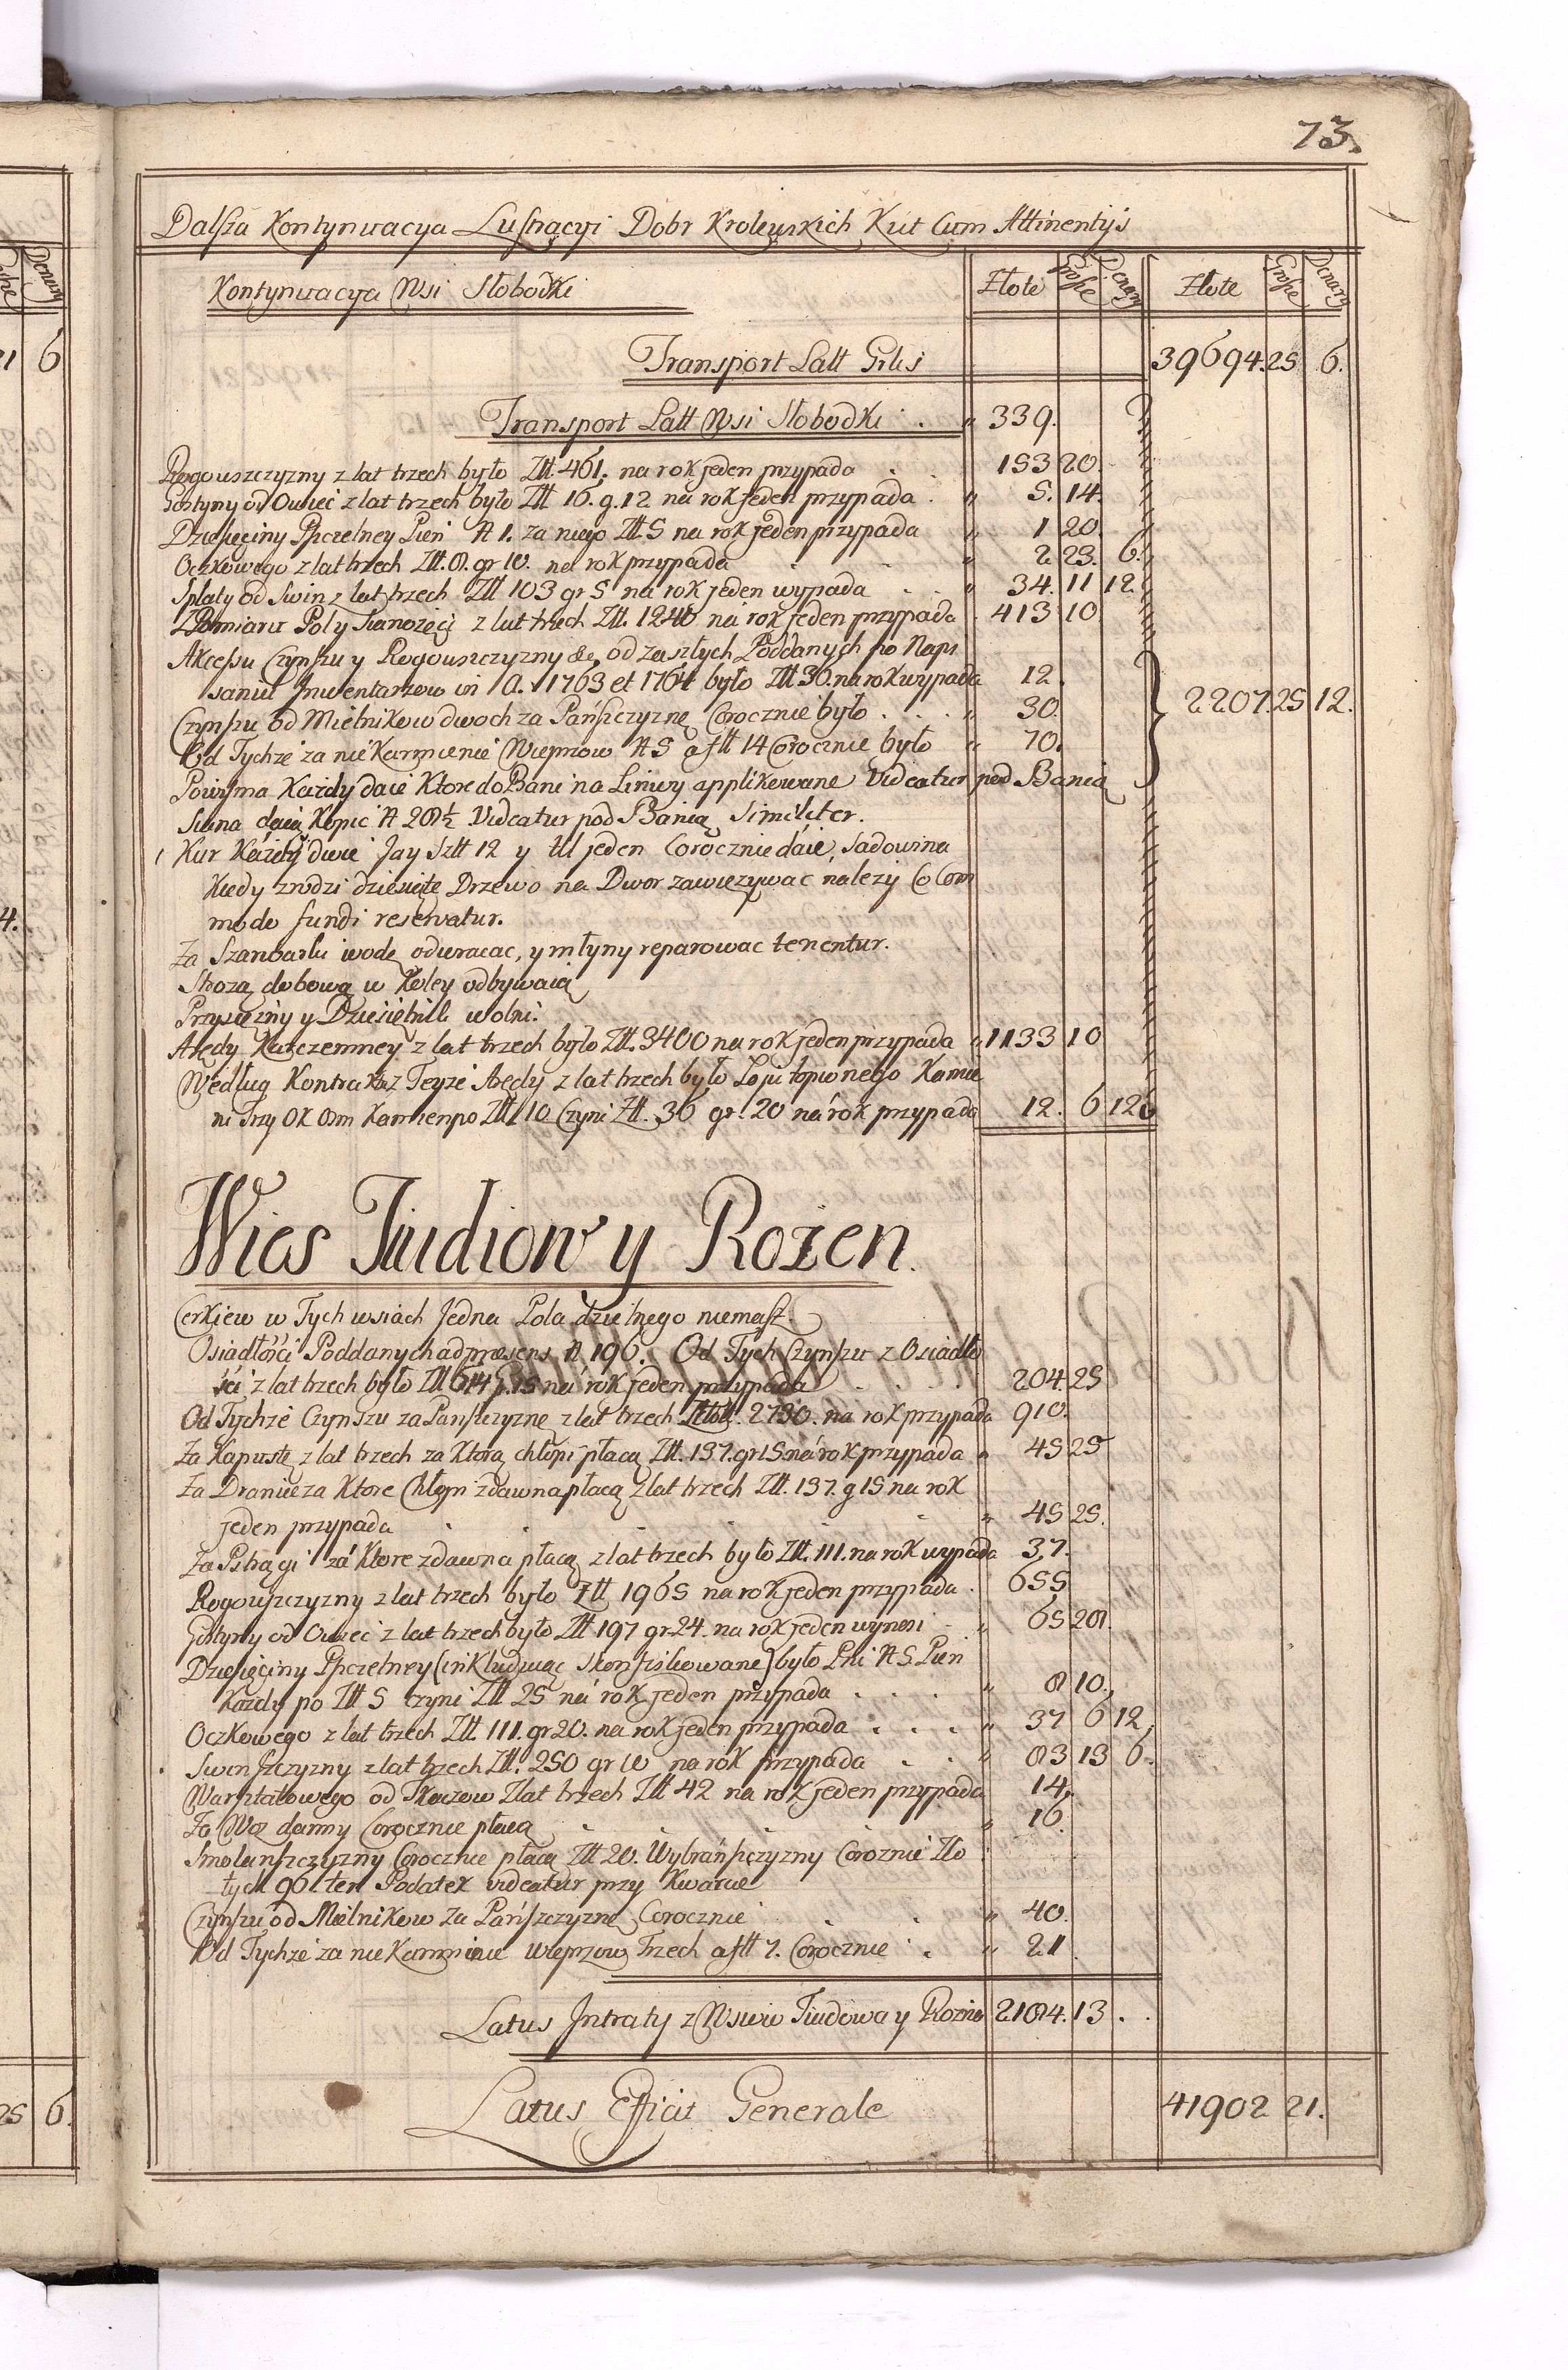 73.
Dalsza Kontynuacya Lustracyi Dobr Krolewskich Kut Cum Attinentijs
Kontynuacya Wsi Słobodki Złote Grosze Denary Złote Grosze Denary
Transport Latt Grlis 39694. 25 6.
Transport Latt Wsi Słobodki . " 339.
Rogowszczyzny z lat trzech było Złł 461. na rok jeden przypada . . 153 20.
Gostyny od Owiec z lat trzech było Złł 16. g. 12 na rok jeden przypada . " 5. 14.
Dziesięciny Pszczelney Pień N 1. za niego Złł 5 na rok jeden przypada " 1 20.
Oczkowego z lat trzech Złł. 8. gr 10. na rok przypada " 2 23. 6.
Spłaty od Swin z lat trzech Złł 103 gr 5 na rok jeden wypada . . " 34. 11 12.
Z Pomiaru Poly Sianożęci z lat trzech Złł. 1240 na rok jeden przypada . 413 10
Akcessu Czynszu y Rogowszczyzny &c. od zaszłych Poddanych po Napi
saniu Inwentarzow in A. 1763 et 1764 było Złł 36. na rok wypada 12. 2207. 25 12.
Czynszu od Mielnikow dwoch za Pańszczyznę Corocznie było . . . " 30.
Od Tychże za nie Karmienie Wieprzow N 5 a fłł 14 Corocznie było " 70.
Powyma Każdy daie Ktore do Bani na Linwy applikowane Videatur pod Banią
Siana daią Kopic N 28½ Videatur pod Banią Similiter.
Kur Każdy dwie Jay Sztt 12 y tłł jeden Corocznie daie, Sadowina
Kiedy zrodzi dziesięte Drzewo na Dwor zawięzywac należy Co Com
modo fundi reservatur.
Za Szarwarki wodę odwracac, y młyny reparowac tenentur.
Strożą dobową w Koley odbywaią
Przysiężny y Dziesiętnik wolni.
Arędy Karczemney z lat trzech było Złł. 3400 na rok jeden przypada " 1133 10
Według Kontraktu z Teyże Arędy z lat trzech było Łoju topionego Kamie
ni Trzy Ok Osm Kamien po Złł 10 Czyni Złł. 36 gr. 20 na rok przypada 12. 6 12
Wies Tiudiow y Rożen.
Cerkiew w Tych wsiach Jedna Pola dzielnego niemasz.
Osiadłości Poddanych ad praesens N 196. Od Tych Czynszu z Osiadło
ści z lat trzech było Złł 614 g. 15 na rok jeden przypada . . . 204. 25
Od Tychże Czynszu za Pańszczyznę z lat trzech Złł. 2730. na rok przypada 910.
Za Kapustę z lat trzech za Ktorą chłopi płacą Złł. 137. gr 15 na rok przypada " 45 25
Za Dranice za Ktore Chłopi zdawna płacą z lat trzech Złł. 137. g 15 na rok
jeden przypada . . . . . . " 45 25.
Za Pstrągi za Ktore zdawna płacą z lat trzech było Złł. 111. na rok wypada 37.
Rogowszczyzny z lat trzech było Złł 1965 na rok jeden przypada . 655
Gostyny od Owiec z lat trzech było Złł 197 gr 24. na rok jeden wynosi . " 65 28.
Dziesięciny Pszczelney (inkludując skonfiskowane) było Pni N 5 Pień
Każdy po Złł 5 czyni Złł 25 na rok jeden przypada . . . " 8 10.
Oczkowego z lat trzech Złł. 111. gr 20. na rok jeden przypada . . . " 37 6 12.
Swinszczyzny z lat trzech Złł. 250 gr 10 na rok przypada . . " 83 13 6.
Warsztatowego od Tkaczow z lat trzech Złł 42 na rok jeden przypada 14.
Za Woz danny Corocznie płacą . . . . " 16.
Smolanszczyzny Corocznie płacą Złł 20. Wybrańszczyzny Corocznie Zło
tych 90. ten Podatek videatur przy Kwarcie
Czynszu od Mielnikow Za Pańszczyznę Corocznie . . " 40.
Od Tychże za nie Karmienie wieprzow Trzech a fłł 7. Corocznie . . " 21
Latus Intraty z Wsiow Tiudowa y Rożna 2184. 13 . .
Latus Efficit Generale 41902 21.